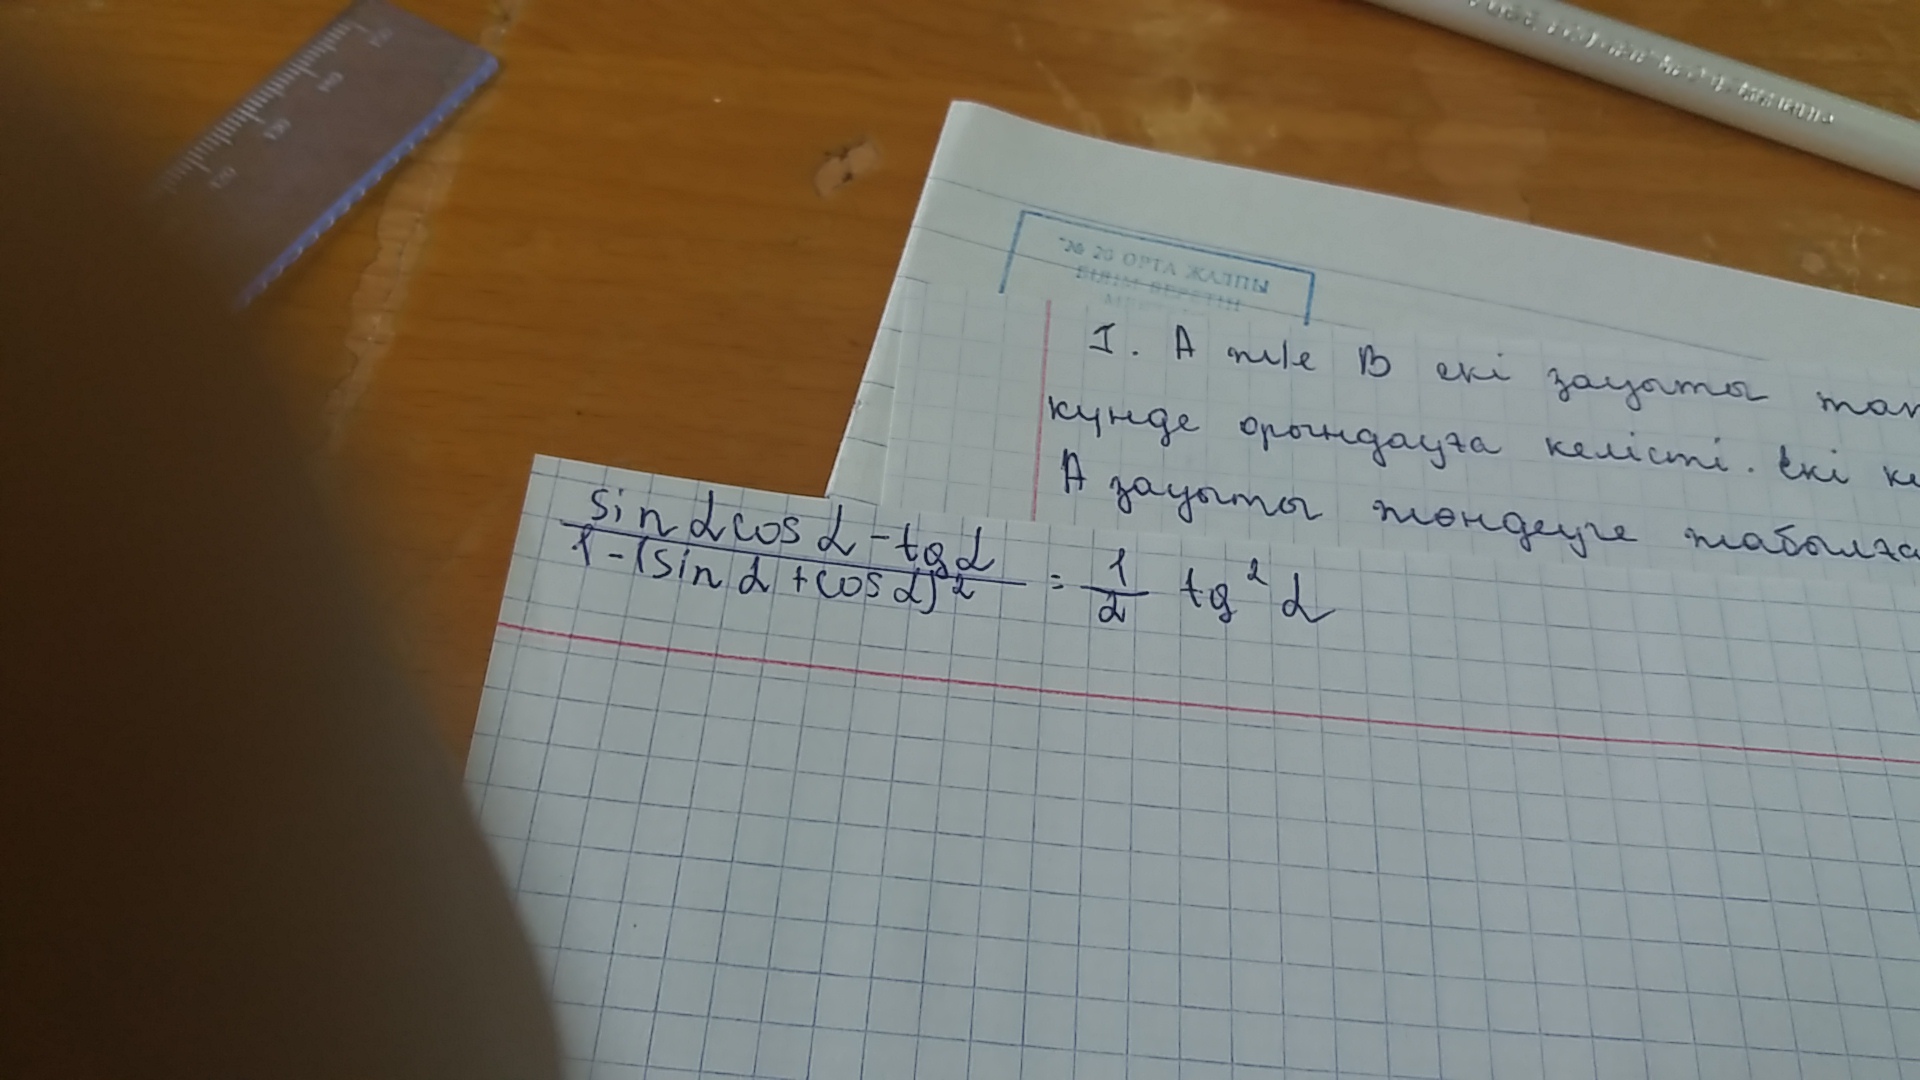 № 20 ОРТА ЖАЛПЫ
БІЛІМ БЕРЕТІН
I. А ж/е В екі зауыты
күнде орындауға келісті. Екі
А зауыты жөндеуге
sin α cos α - tg α / 1 - (sin α + cos α)² = 1/2 tg² α